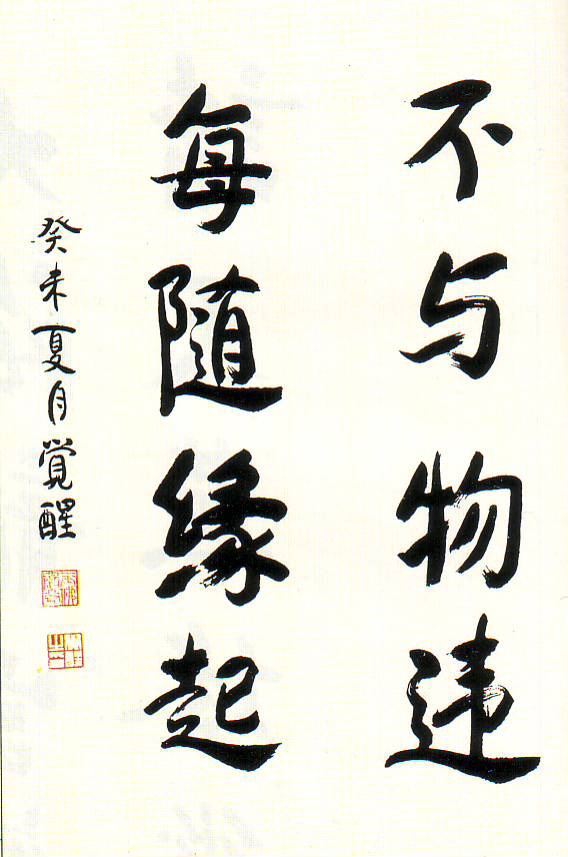 不与物违
每随缘起
癸未夏月覺醒